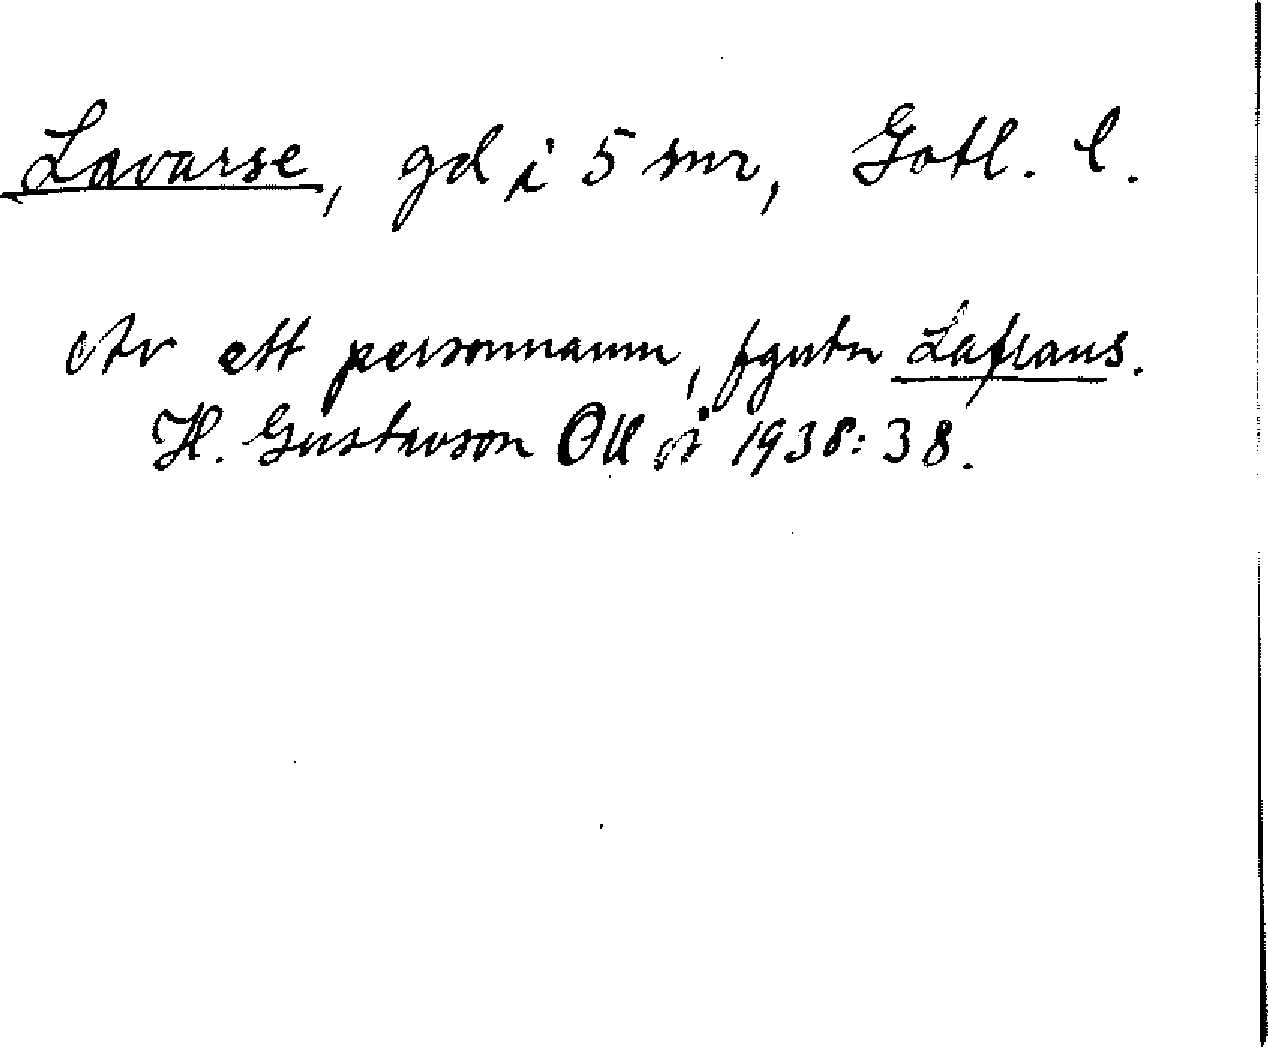 Lavarse, gd i 5 snr, Gotl. l.
Av ett personnamn, fgutn Lafrans.
H. Gustavson OUÅ 1938:38.